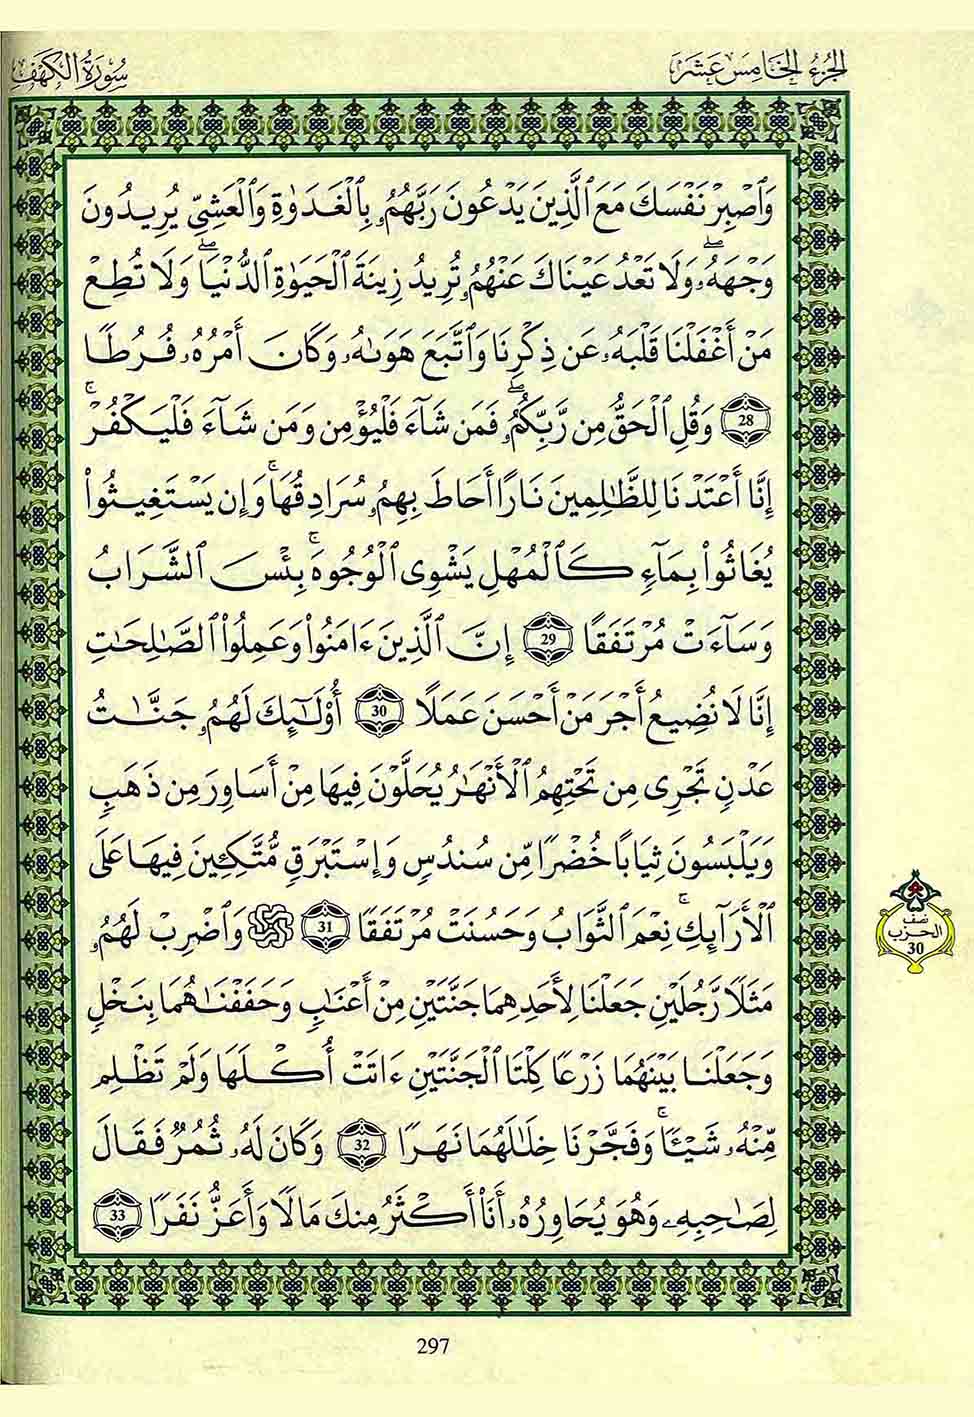 الجزء الخامس عشر
سورة الكهف
وَٱصۡبِرۡ نَفۡسَكَ مَعَ ٱلَّذِينَ يَدۡعُونَ رَبَّهُمُۥ بِٱلۡغَدَوٰةِ وَٱلۡعَشِيِّ يُرِيدُونَ
وَجۡهَهُۥۖ وَلَا تَعۡدُ عَيۡنَاكَ عَنۡهُمُۥ تُرِيدُ زِينَةَ ٱلۡحَيَوٰةِ ٱلدُّنۡيَاۖ وَلَا تُطِعۡ
مَنۡ أَغۡفَلۡنَا قَلۡبَهُۥ عَن ذِكۡرِنَا وَٱتَّبَعَ هَوَىٰهُ وَكَانَ أَمۡرُهُۥ فُرُطٗا
28 وَقُلِ ٱلۡحَقُّ مِن رَّبِّكُمُۥۖ فَمَن شَآءَ فَلۡيُؤۡمِن وَمَن شَآءَ فَلۡيَكۡفُرۡۚ
إِنَّا أَعۡتَدۡنَا لِلظَّٰلِمِينَ نَارًا أَحَاطَ بِهِمُۥ سُرَادِقُهَاۚ وَإِن يَسۡتَغِيثُواْ
يُغَاثُواْ بِمَآءٖ كَٱلۡمُهۡلِ يَشۡوِي ٱلۡوُجُوهَۚ بِئۡسَ ٱلشَّرَابُ
وَسَآءَتۡ مُرۡتَفَقًا 29 إِنَّ ٱلَّذِينَ ءَامَنُواْ وَعَمِلُواْ ٱلصَّٰلِحَٰتِ
إِنَّا لَا نُضِيعُ أَجۡرَ مَنۡ أَحۡسَنَ عَمَلًا 30 أُوْلَٰٓئِكَ لَهُمُۥ جَنَّٰتُ
عَدۡنٖ تَجۡرِي مِن تَحۡتِهِمُ ٱلۡأَنۡهَٰرُ يُحَلَّوۡنَ فِيهَا مِنۡ أَسَاوِرَ مِن ذَهَبٖ
وَيَلۡبَسُونَ ثِيَابًا خُضۡرٗا مِّن سُندُسٖ وَإِسۡتَبۡرَقٖ مُّتَّكِـِٔينَ فِيهَا عَلَى
ٱلۡأَرَآئِكِۚ نِعۡمَ ٱلثَّوَابُ وَحَسُنَتۡ مُرۡتَفَقٗا 31 وَٱضۡرِبۡ لَهُمُۥ
مَثَلٗا رَّجُلَيۡنِ جَعَلۡنَا لِأَحَدِهِمَا جَنَّتَيۡنِ مِنۡ أَعۡنَٰبٖ وَحَفَفۡنَٰهُمَا بِنَخۡلٖ
وَجَعَلۡنَا بَيۡنَهُمَا زَرۡعٗا كِلۡتَا ٱلۡجَنَّتَيۡنِ ءَاتَتۡ أُكۡلَهَا وَلَمۡ تَظۡلِم
مِّنۡهُۥ شَيۡـٔٗاۚ وَفَجَّرۡنَا خِلَٰلَهُمَا نَهَرٗا 32 وَكَانَ لَهُۥ ثُمُرٞ فَقَالَ
لِصَٰحِبِهِۦ وَهُوَ يُحَاوِرُهُۥ أَنَا۠ أَكۡثَرُ مِنكَ مَالٗا وَأَعَزُّ نَفَرٗا 33
نصف
الحزب
30
297